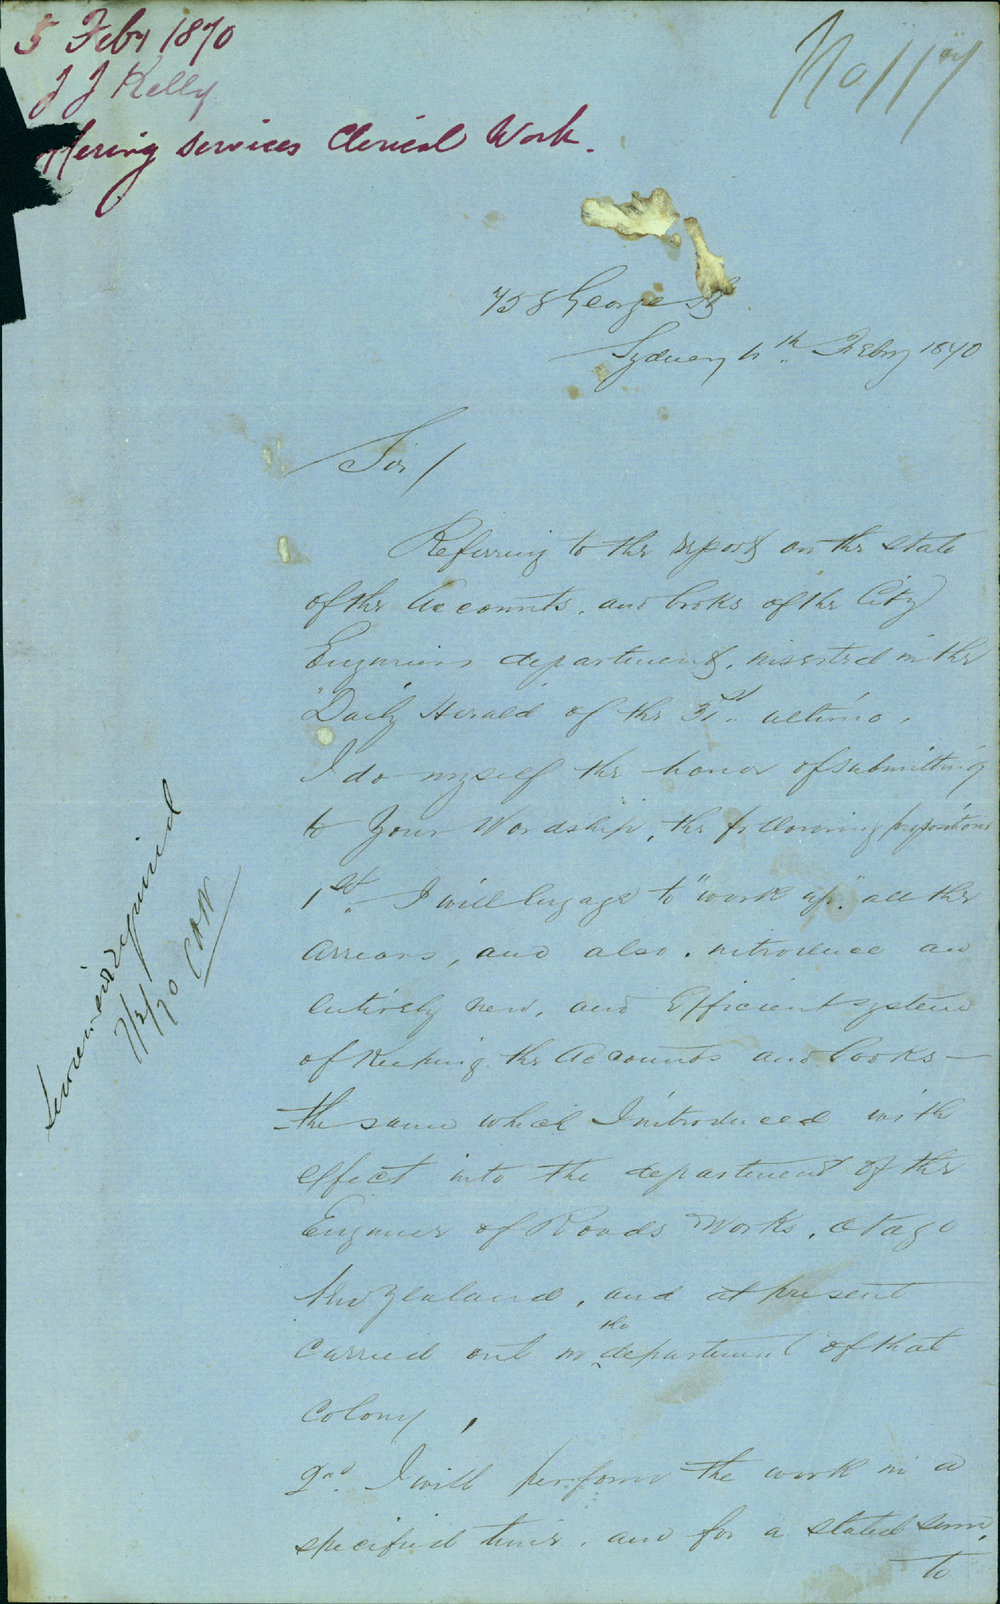 5 Feby 1870
J J Kelly
ffering services Clerical Work.
No 117
758 George St
Sydney 4th Feby 1870
Sir/
Referring to the report on the state
of the Accounts, and books of the City
Engineers department, inserted in the
"Daily Herald of the 31st ultimo,
I do myself the honor of submitting
to Your Worship, the following propositions
1st. I will Engage to "work up" all the
Arrears, and also, introduce an
Entirely new, and Efficient system
of Keeping the Accounts and books –
the same which I introduced with
effect into the department of the
Engineer of Roads Works, Otago
New Zealand, and at present
Carried out in the department of that
Colony,
2nd. I will perform the work in a
specified time, and for a stated sum,
to
Services not required
7/2/70 CHW